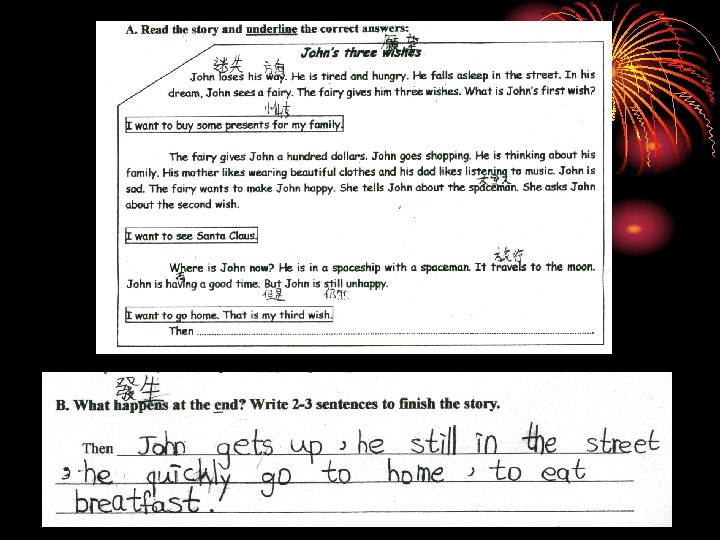 A. Read the story and underline the correct answers:
願望
John's three wishes
迷失 方向
John loses his way. He is tired and hungry. He falls asleep in the street. In his
dream, John sees a fairy. The fairy gives him three wishes. What is John's first wish?
小仙女
I want to buy some presents for my family.
The fairy gives John a hundred dollars. John goes shopping. He is thinking about his
family. His mother likes wearing beautiful clothes and his dad likes listening to music. John is
sad. The fairy wants to make John happy. She tells John about the spaceman. She asks John
about the second wish.
I want to see Santa Claus.
旅行
Where is John now? He is in a spaceship with a spaceman. It travels to the moon.
John is having a good time. But John is still unhappy.
但是
I want to go home. That is my third wish.
Then
發生
B. What happens at the end? Write 2-3 sentences to finish the story.
Then John gets up , he still in the street
, he quickly go to home , to eat
breatfast .